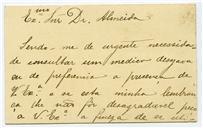 Exmo Snr Dr. Almeida
Sendo-me de urgente necessida-
de consultar um medico desejava
de preferencia a presença de
V. Exa e se esta minha lembran
ça lhe não fôr desagradavel peço
a V. Exa a fineza de se